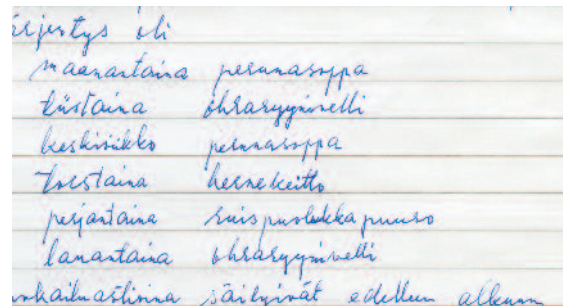 järjestys oli
maanantaina perunasoppa
tiistaina ohraryynivelli
keskiviikko perunasoppa
torstaina hernekeitto
perjantaina ruispuolukkapuuro
lauantaina ohraryynivelli
säilyivät edelleen